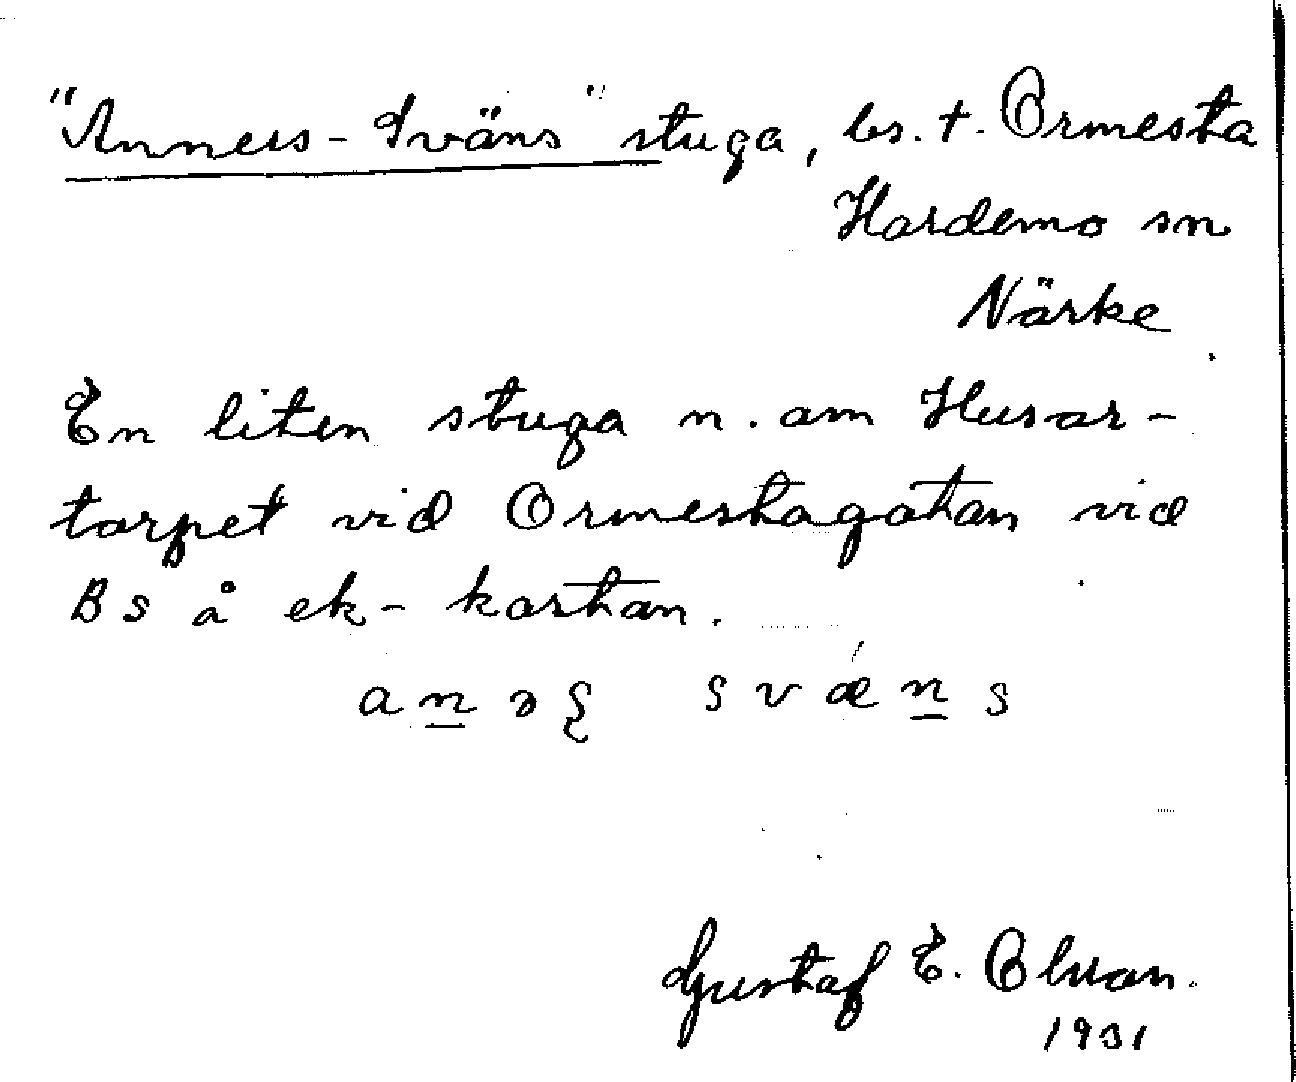 "Anners-Sväns" stuga, bs. t. Ormesta
Hardemo sn
Närke
En liten stuga n. om Husar-
torpet vid Ormestagatan vid
Bs å ek-kartan.
svæns
Gustaf E.
1931